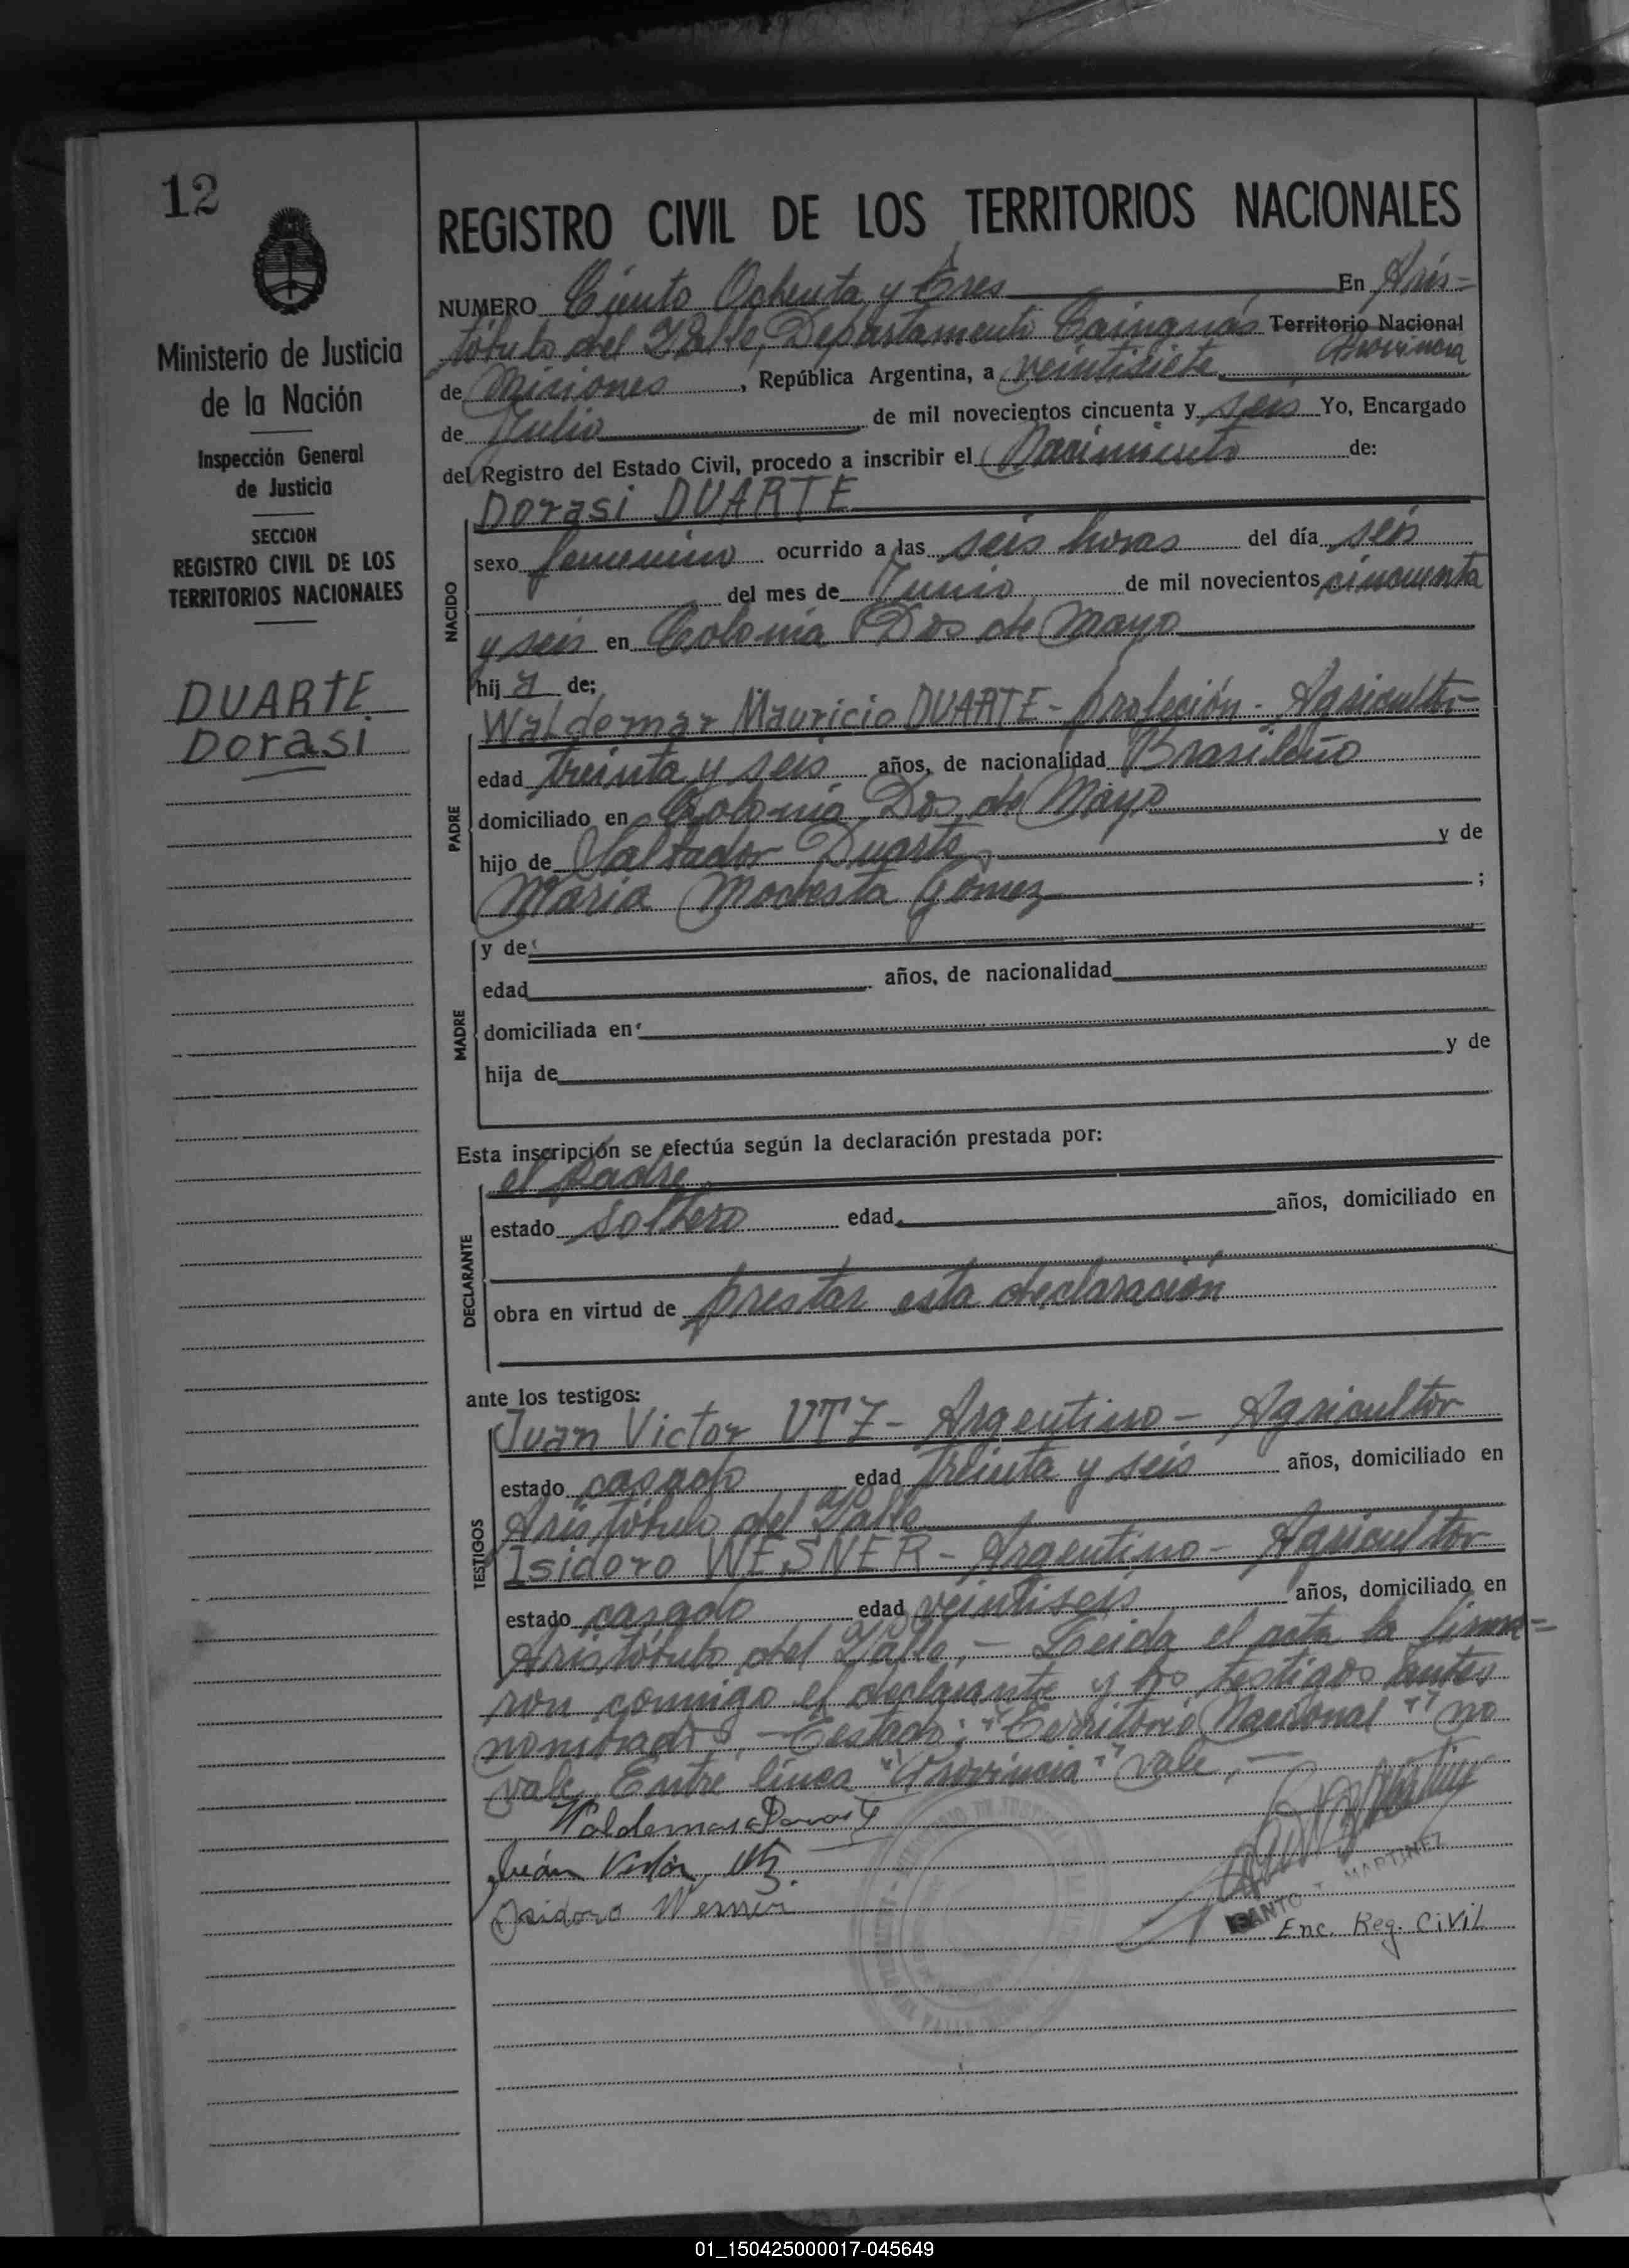 12
Ministerio de Justicia
de la Nación
Inspección General
de Justicia
SECCION
REGISTRO CIVIL DE LOS
TERRITORIOS NACIONALES
DUARTE
Dorasi
REGISTRO CIVIL DE LOS TERRITORIOS NACIONALES
NUMERO Ciento Ochenta y Tres En Aris=
tóbulo del Valle, Departamento Cainguás Territorio Nacional
Provincia
de Misiones, República Argentina, a veintisiete
de Julio de mil novecientos cincuenta y seis Yo, Encargado
del Registro del Estado Civil, procedo a inscribir el Nacimiento de:
NACIDO
Dorasi DUARTE
sexo femenino ocurrido a las seis horas del día seis
del mes de Junio de mil novecientos cincuenta
y seis en Colonia Dos de Mayo
hija de;
PADRE
Waldemar Mauricio DUARTE - profeción - Agricultor
edad treinta y seis años, de nacionalidad Brasileño
domiciliado en Colonia Dos de Mayo
hijo de Saltador Duarte y de
Maria Modesta Gomez ;
MADRE
y de
edad años, de nacionalidad
domiciliada en
hija de y de
Esta inscripción se efectúa según la declaración prestada por:
DECLARANTE
el padre
estado soltero edad años, domiciliado en
obra en virtud de prestar esta declaración
ante los testigos:
TESTIGOS
Juan Victor UTZ - Argentino - Agricultor
estado casado edad treinta y seis años, domiciliado en
Aristóbulo del Valle
Isidoro WESNER - Argentino - Agricultor
estado casado edad veintiseis años, domiciliado en
Aristóbulo del Valle, - Leida el acta la firma=
ron conmigo el declarante y los testigos antes
nombrados. - Testado: "Territorio Nacional" no
vale, Entre línea "Provincia" Vale, -
Waldemar Duarte
Juán Victor Utz.
Isidoro Wesner
MARTINEZ
Enc. Reg. Civil
01_150425000017-045649